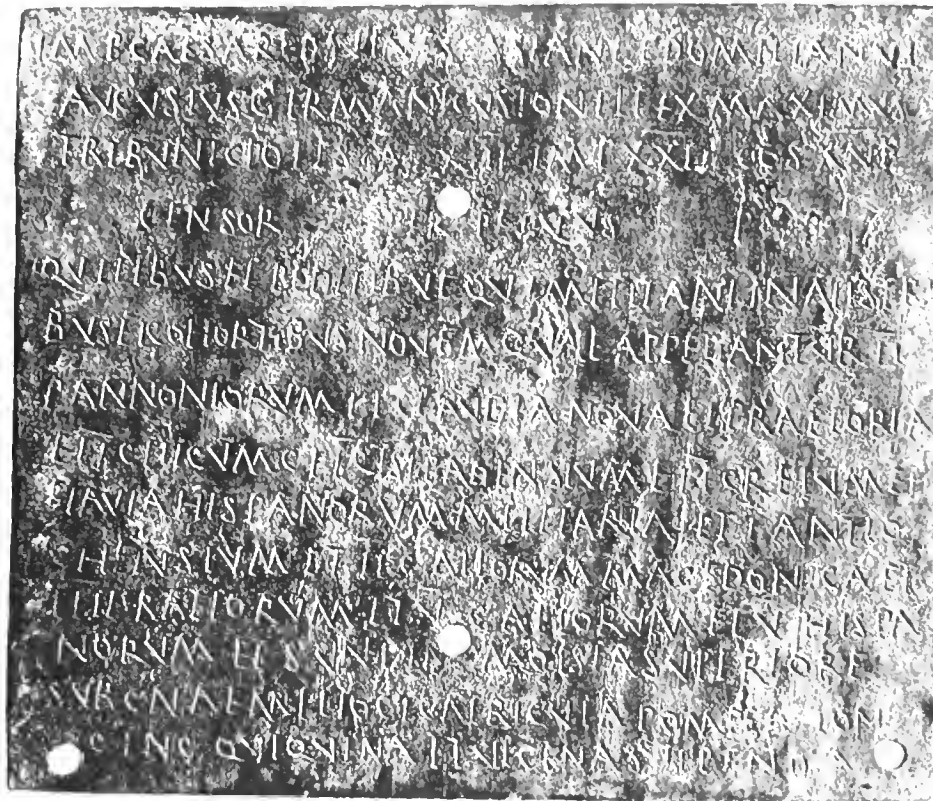 IMP CAESAR DIVI VESPASIANI F DOMITIANVS
AVGVSTVS GERMANICVS PONTIFEX MAXIMVS
TRIBVNIC POTESTAT XII IMP XXII COS XVI
CENSOR PERPETVVS P P
QVITIBVS ET PEDITIBVS QVI MILITANT IN ALIS TRI
BVS ET COHORTIBVS NOVEM QVAE APPELLANTVR II
PANNONIORVM ET CLAVDIA NOVA ET PRAETORIA
ET I CILICVM ET I CISIPADENSIVM ET I CRETVM ET I
FLAVIA HISPANORVM MILLIARIA ET I ANTIO
HENSIVM ET II GALLORVM MACEDONICA ET
IIII RAETORVM ET V GALLORVM ET V HISPA
NORVM ET SVNT IN MOESIA SVPERIORE
SVB CN AEMILIO CICATRICVLA POMPEIO LON
GINO QVI QVINA ET VICENA STIPENDIA